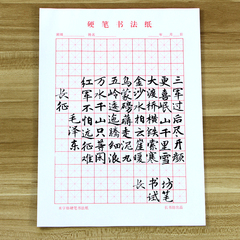 硬笔书法纸
长征
毛泽东
红军不怕远征难
万水千山只等闲
五岭逶迤腾细浪
乌蒙磅礴走泥丸
金沙水拍云崖暖
大渡桥横铁索寒
更喜岷山千里雪
三军过后尽开颜
长书坊
试笔